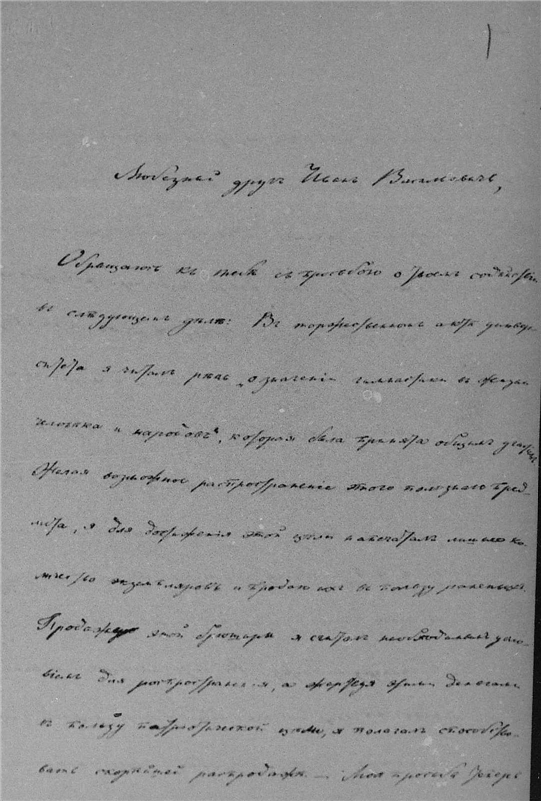 1
Любезный другъ Иванъ Васильевичъ,
Обращаюсь къ тебѣ съ просьбою о твоемъ содѣйствіи
въ слѣдующемъ дѣлѣ: Въ торжественномъ актѣ универ-
ситета я читалъ рѣчь „о значеніи гимнастики въ жизни
человѣка и народовъ“, которая была принята общимъ
Желая возможное распространеніе этого полезнаго пред-
мета, я для достиженія этой цѣли напечаталъ лишнее ко-
личество экземпляровъ и продаю ихъ въ пользу раненыхъ.
Продажу этой брошюры я считалъ необходимымъ усло-
віемъ для распространенія, а жертвуя этими деньгами
въ пользу патріотической цѣли, я полагалъ способство-
вать скорѣйшей распродажѣ. — Моя просьба теперь